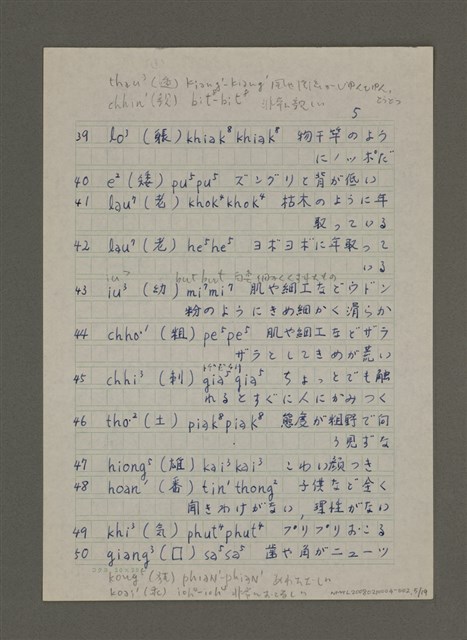 thau³ (透) kiang³-kiang³
chhin¹ (親) bit⁸-bit⁸ 非常に親しい
5
39 lo³ (軂) khiak⁸khiak⁸ 物干竿のよう
にノッポだ
40 e² (矮) pu⁵pu⁵ ズングリと背が低い
41 lau⁷ (老) khok⁴khok⁴ 枯木のように年
取っている
42 lau⁷ (老) he⁵he⁵ ヨボヨボに年取って
いる
iu³ but but
43 iu³ (幼) mi⁷mi⁷ 肌や細工などウドン
粉のようにきめ細かく滑らか
44 chho·¹ (粗) pe⁵pe⁵ 肌や細工などザラ
ザラとしてきめが荒い
45 chhi³ (刺) gia⁵gia⁵ ちょっとでも触
れるとすぐに人にかみつく
46 tho·² (土) piak⁸piak⁸ 態度が粗野で向
う見ずな
47 hiong⁵ (雄) kai³kai³ こわい顔つき
48 hoan¹ (番) tin¹thong² 子供など全く
聞きわけがない,理性がない
49 khi³ (気) phut⁴phut⁴ プリプリおこる
50 giang³ (□) sa⁵sa⁵ 歯や角がニューッ
kong⁵ (狂) phian³-phian³
koai¹ (乖) ich⁸-ich⁸
5/19